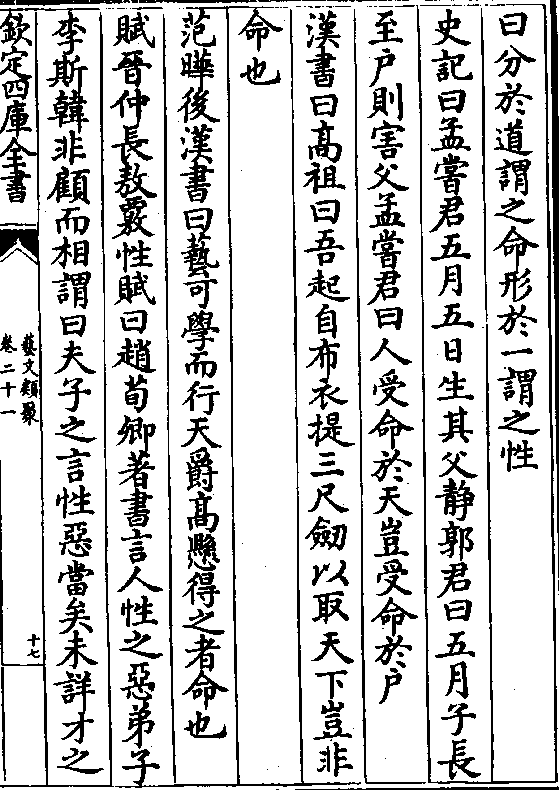 曰分於道謂之命形於一謂之性
史記曰孟嘗君五月五日生其父靜郭君曰五月子長
至戶則害父孟嘗君曰人受命於天豈受命於戶
漢書曰高祖曰吾起自布衣提三尺劒以取天下豈非
命也
范曄後漢書曰藝可學而行天爵高懸得之者命也
賦晉仲長敖覈性賦曰趙荀卿著書言人性之惡弟子
李斯韓非顧而相謂曰夫子之言性惡當矣未詳才之
欽定四庫全書
藝文類聚
卷二十一
十七